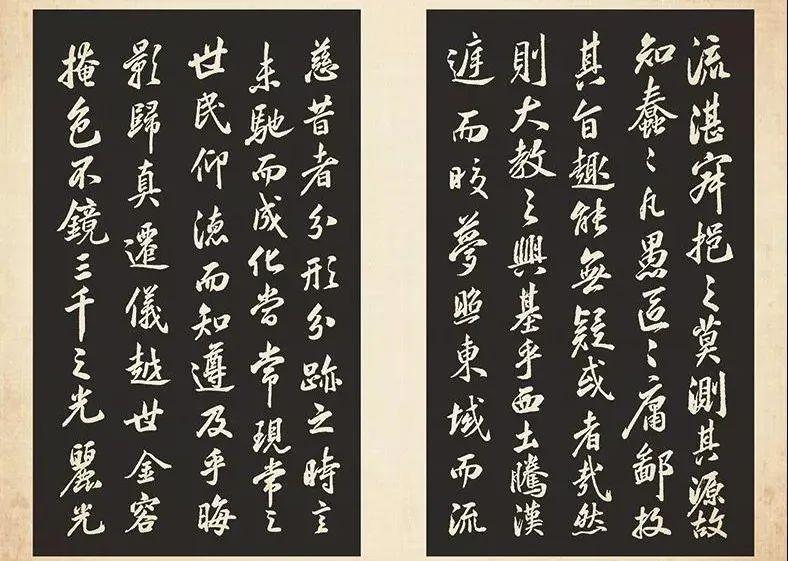 流湛寂挹之莫測其源故
知蠢〻凡愚區〻庸鄙投
其旨趣能無疑或者哉然
則大教之興基乎西土騰漢
庭而晈夢照東域而流
慈昔者分形分跡之時言
未馳而成化當常現常之
世民仰德而知遵及乎晦
影歸真遷儀越世金容
掩色不鏡三千之光麗象